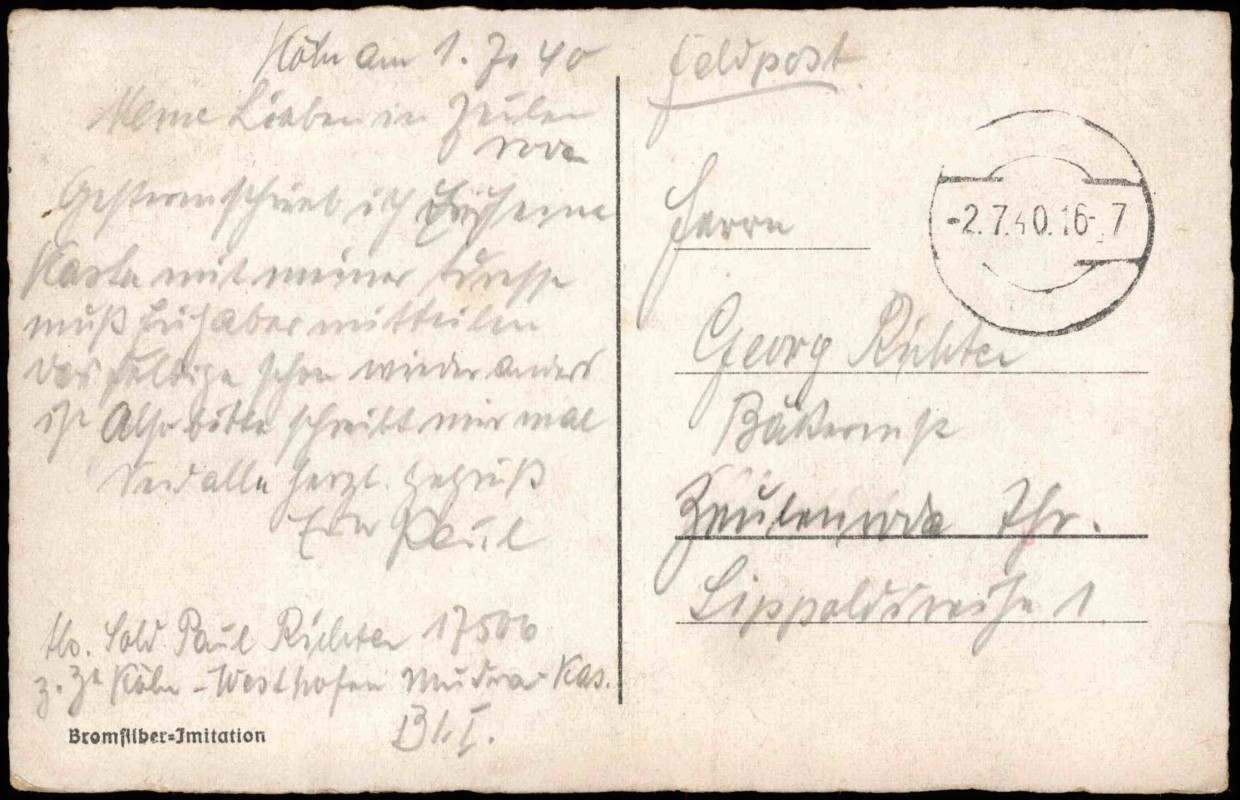 Köln am 1. 7. 40
Meine Lieben in Zeulen
roda
Gestern schrieb ich Euch eine
Karte mit meiner Adresse
muß Euch aber mitteilen
das selbige schon wieder anders
ist Also bitte schreibt mir mal
Seid alle herzl. gegrüß
Euer Paul
Sold Paul Richter 17566
z. Zt Köln - Westhofen Mudra-Kas.
Bl. I.
Bromsilber=Imitation
Feldpost
Herrn
Georg Richter
Bäkermst
Zeulenroda Thr.
Lippoldsreihe 1
-2.7.40.16-7